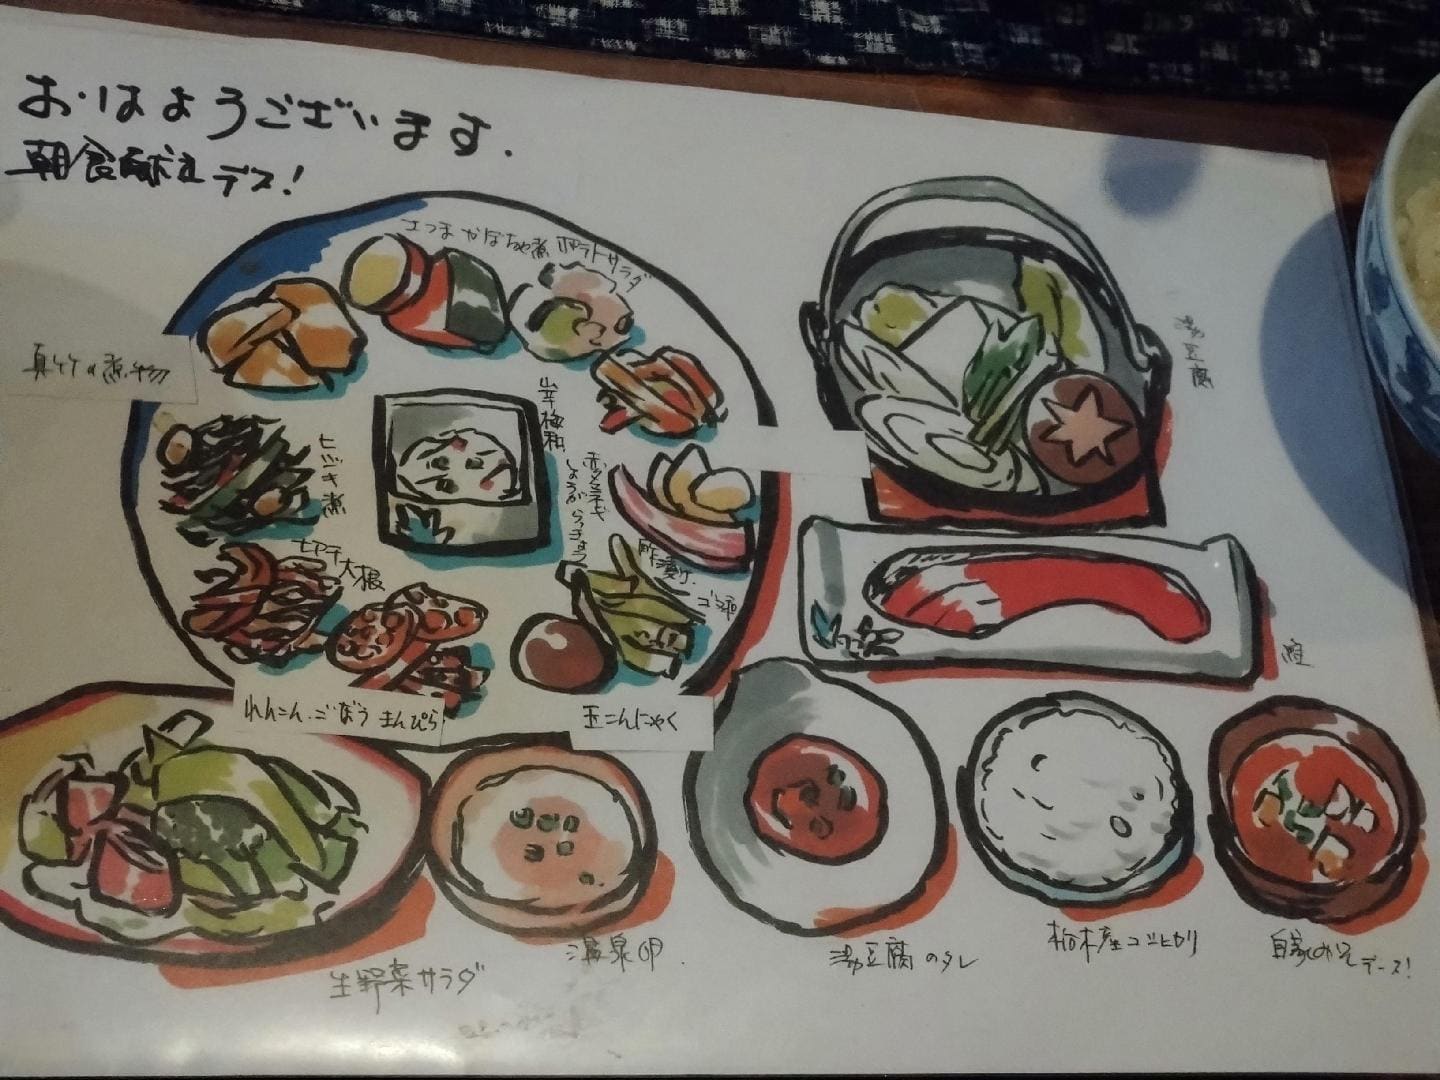 おはようございます.
朝食献立デス!
さつまかぼちゃ煮
ポテトサラダ
真竹の煮物
湯豆腐
ヒジキ煮
赤タマネギ
しょうがらっきょう
酢漬け
ゴマ和
大根
鮭
れんこん.ごぼうきんぴら
玉こんにゃく
生野菜サラダ
温泉卵.
湯豆腐のタレ
栃木産コシヒカリ
自家みそデース!